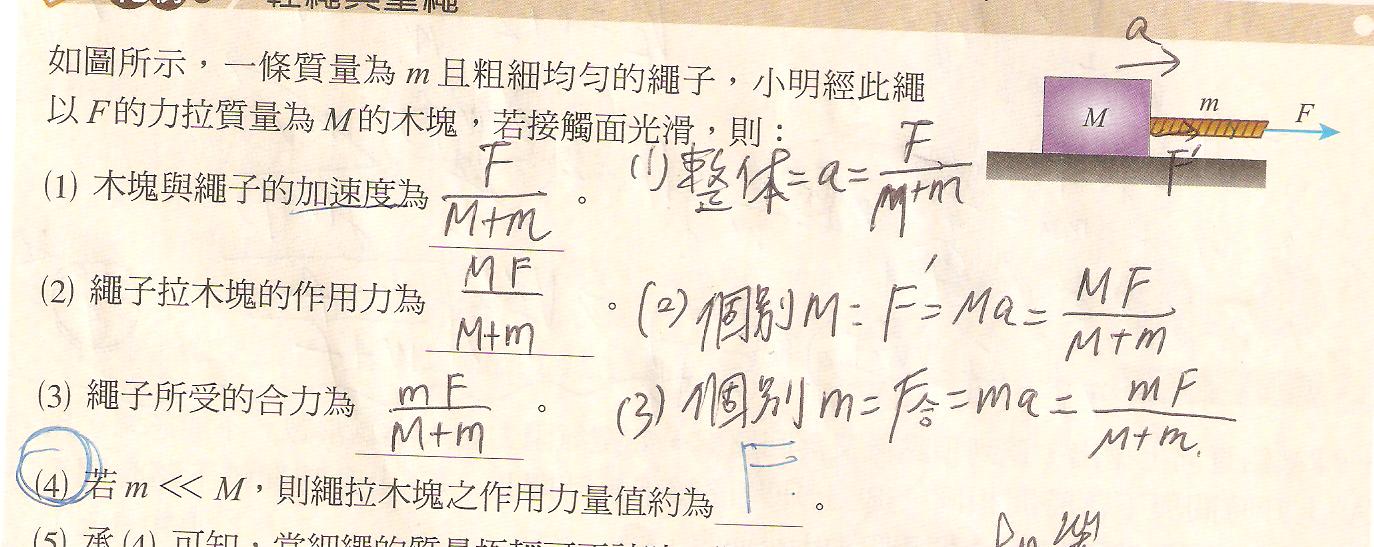 輕繩與重繩
如圖所示，一條質量為 m 且粗細均勻的繩子，小明經此繩
以 F 的力拉質量為 M 的木塊，若接觸面光滑，則：
a
M
m
F
F'
(1) 木塊與繩子的加速度為 F/(M+m) 。
(1) 整体= a = F/(M+m)
(2) 繩子拉木塊的作用力為 MF/(M+m) 。
(2) 個別M= F' = Ma = MF/(M+m)
(3) 繩子所受的合力為 mF/(M+m) 。
(3) 個別m= F合 = ma = mF/(M+m)
(4) 若 m << M，則繩拉木塊之作用力量值約為 F 。
(5) 承(4)可知，當細繩的質量